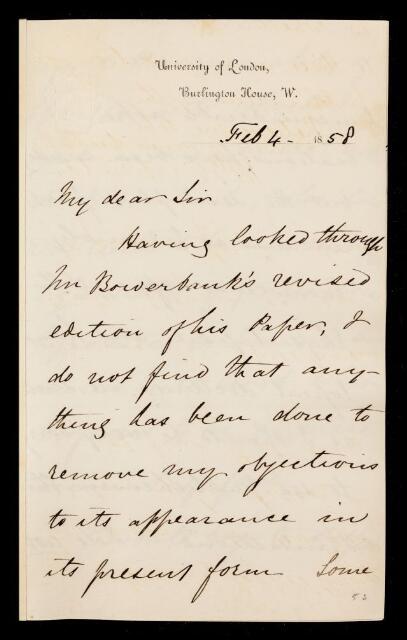 University of London,
Burlington House, W.
Feb 4 - 1858
My dear Sir
Having looked through
Mr Bowerbank's revised
edition of his Paper, I
do not find that any-
thing has been done to
remove my objections
to its appearance in
its present form Some
53